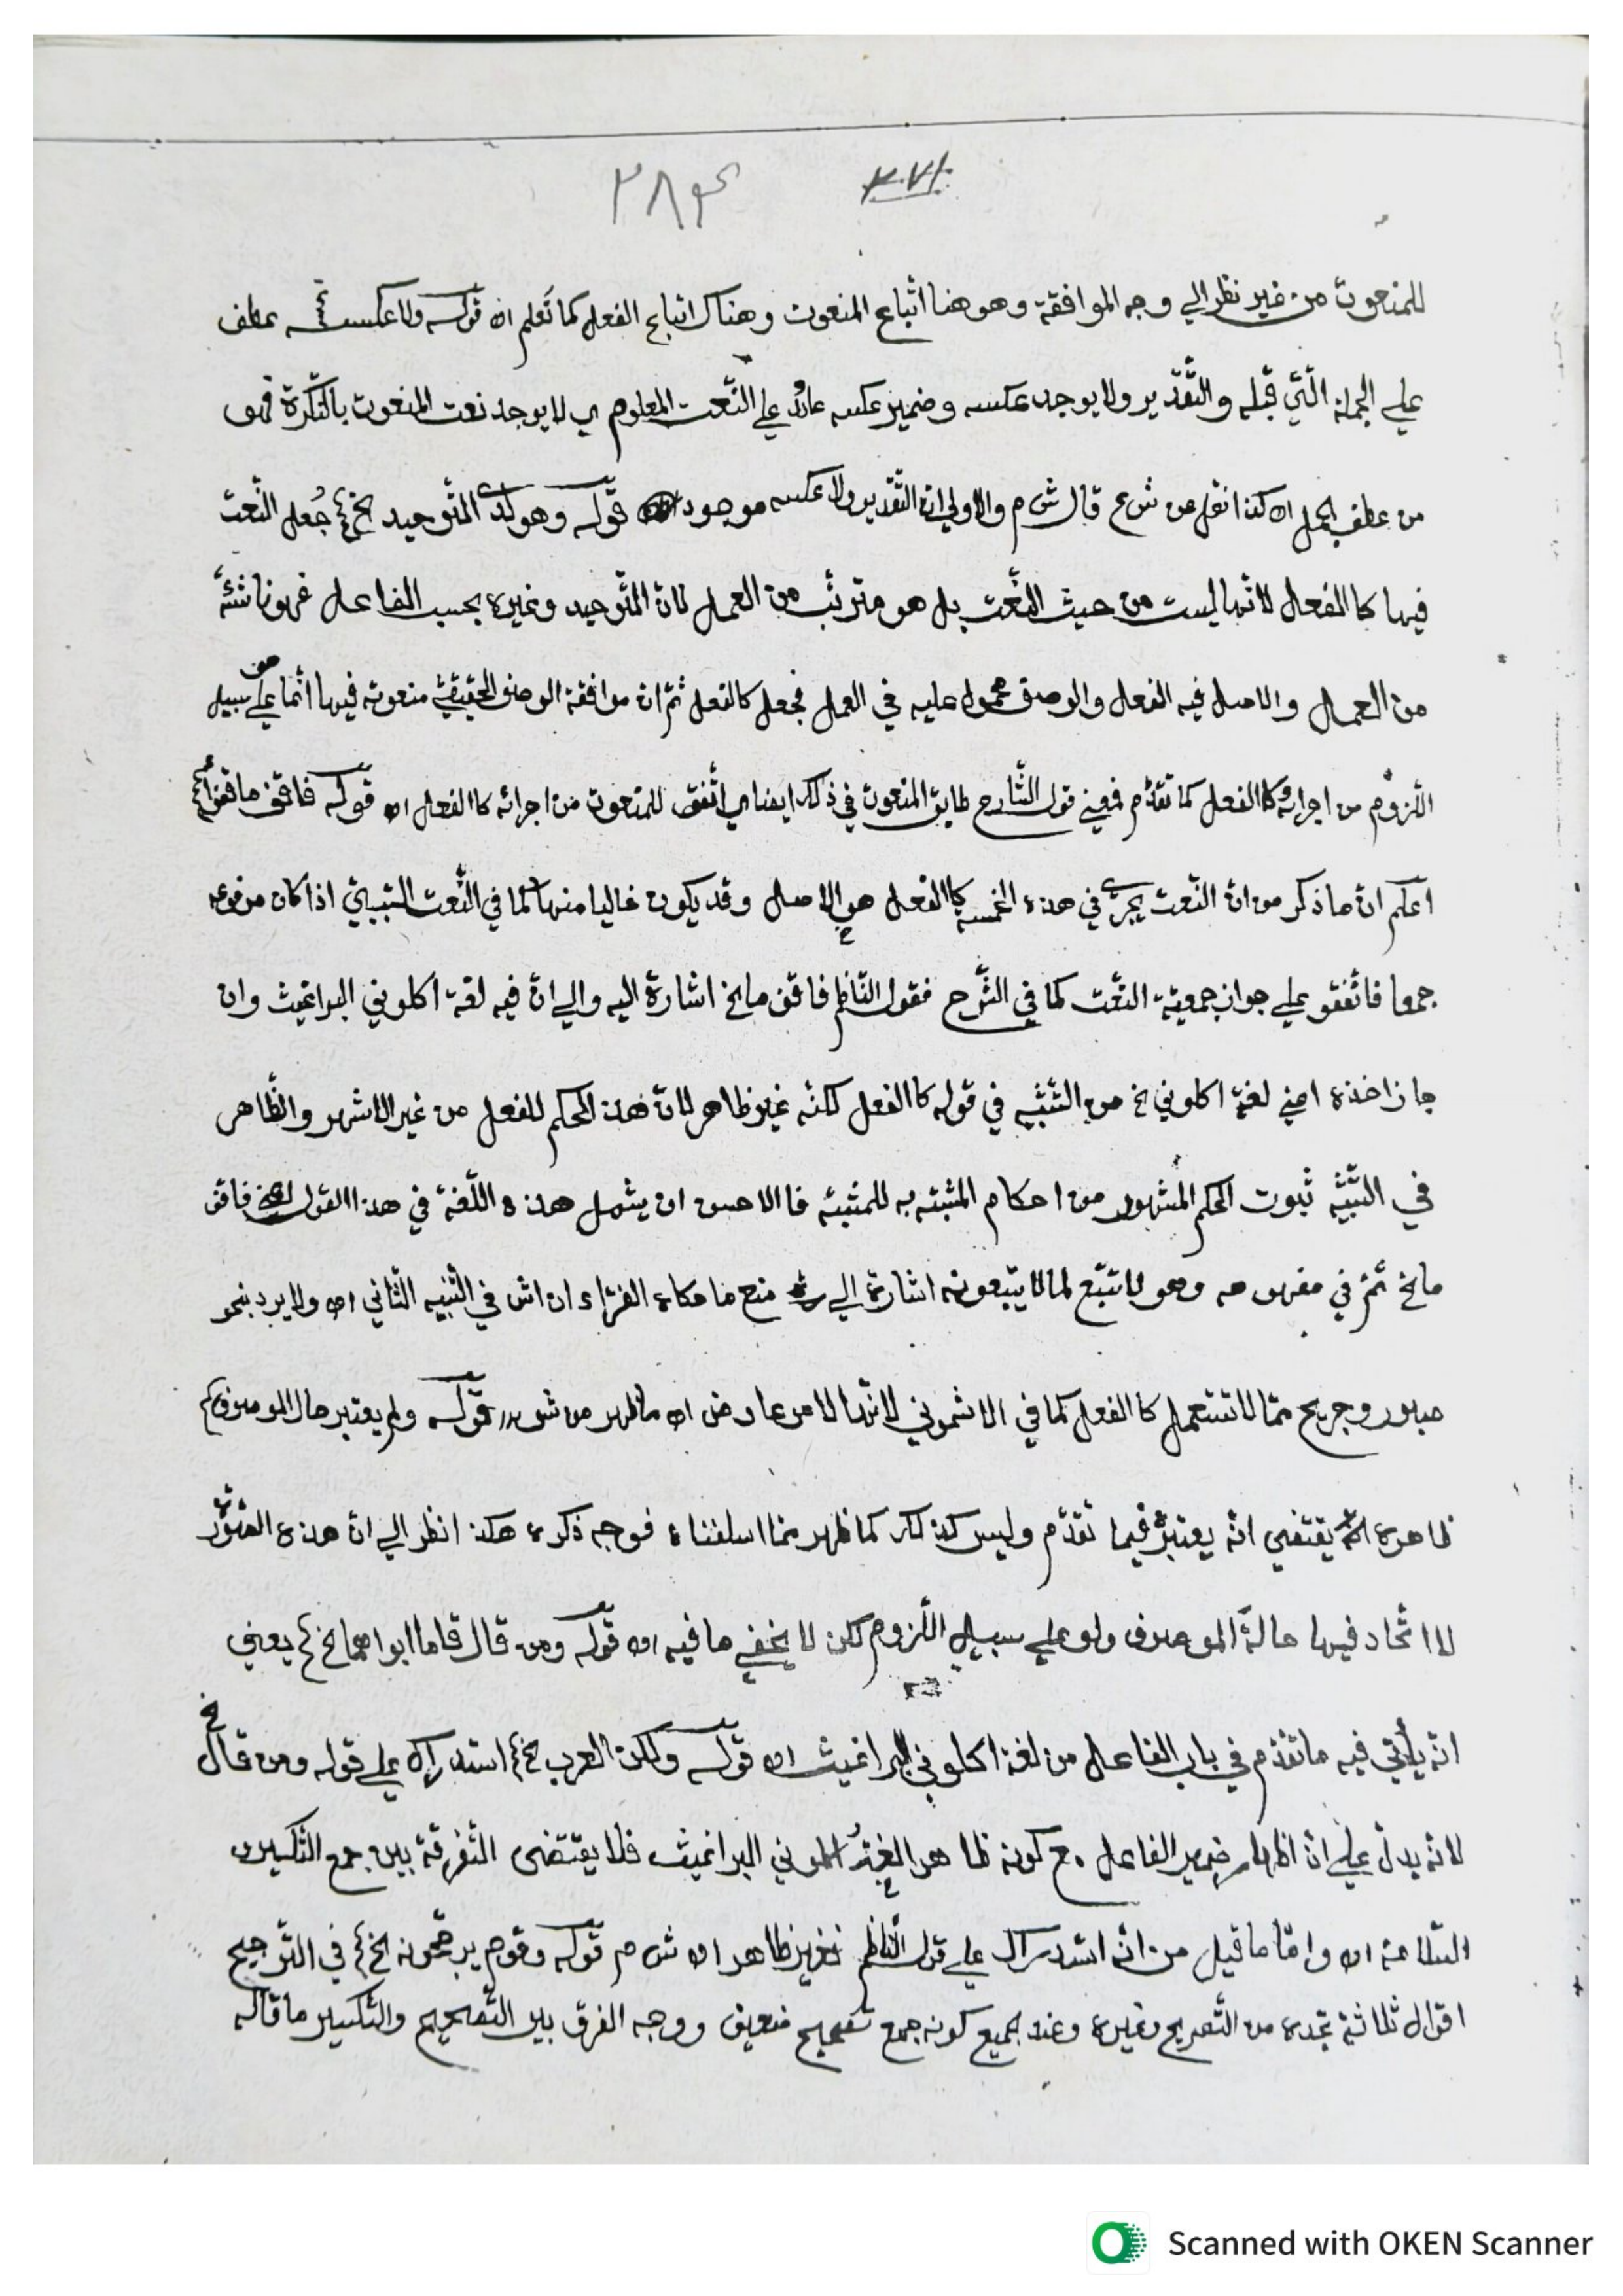 ٢٨٣ ٢٧١
للمنعوت من غير نظر الي وجه الموافقة وهو هنا اتباع المنعوت وهناك اتباع الفعل كما تعلم اه قوله ولا عكس عطف
علي الجملة الّتي قبله والتّقدير ولا يوجد عكسه وضمير عكسه عائد علي النّعت المعلوم اي لا يوجد نعت المنعوت بالنّكرة فهو
من عطف الجمل اه كذا نقل عن ش ع قال ش م والاولي انّ التّقدير ولا عكسه موجود قوله وهو لدي التّوحيد الخ جُعل النّعت
فيها كا الفعل لانّها ليست من حيث النّعت بل هو مترتّب من العمل لانّ التّوحيد وغيره بحسب الفاعل فهو ناشئة
من العمل والاصل فيه الفعل والوصف محمول عليه في العمل فجعل كالفعل ثمّ ان موافقة الوصف الحقيقيّ منعوته فيها انّما هو علي سبيل
اللّزوم من اجرائه كا الفعل كما تقدّم فمعني قول الشّارح طابق المنعوت في ذلك ايضا اي اتّفق للمنعوت من اجرائه كا الفعل اه قوله فاقف ما قفوا
اعلم انّ ما ذكر من انّ النّعت يجري في هذه الخمسة كا الفعل هو الاصل وقد يكون غالبا منها كما في النّعت السّببيّ اذا كان مرفوعه
جمعا فاتّفقو علي جواز جمعيّة النّعت كما في الشّرح فقول النّاظم فاقف ما الخ اشارة اليه والي انّ فيه لغة اكلوني البراغيث وان
جاز اخذه اعني لغة اكلوني الخ من التّشبيه في قوله كا الفعل لكنّه غير ظاهر لانّ هذه الحكم للفعل من غير الاشهر والظّاهر
في التّشبيه ثبوت الحكم المشهور من احكام المشبّه به للمشبّه فا الاحسن ان يشمل هذه اللّغة في هذا القول اعني فاقف
ما الخ ثمّ في مفهومه وهو لا تتّبع لما لا يتّبعونه اشارة الي منع ما حكاه الفرّاء ان اش في التّنبيه الثّاني اه ولا يرد بنحو
صبور وجريح ممّا لا تستعمل كا الفعل كما في الاشموني لانّها لامر عارض اه ما ظهر من ش قوله ولم يعتبر حال الموصوف
ظاهره يقتضي انّه يعتبر فيما تقدّم وليس كذلك كما ظهر ممّا اسلفناه فوجه ذكره هكذا نظر الي انّ هذه الصّور
لا اتّحاد فيها حالةَ الموصوف ولو علي سبيل اللّزوم لكن لا يخفي ما فيه اه قوله ومن قال قاما ابواهما الخ يعني
انّه يأتي فيه ما تقدّم في باب الفاعل من لغة اكلوني البراغيث اه قوله ولكن العرب الخ استدراك علي قوله ومن قال الخ
لانّه يدلّ علي انّ اظهار ضمير الفاعل مع كونه ظاهرا لغة اكلوني البراغيث فلا يقتضي التّفرقة بين جمع التّكسير و
السّلامة اه وامّا ما قيل من انّه استدراك علي قول النّاظم فغير ظاهر اه ش م قوله وقوم يرجّحونه الخ في التّرجيح
اقوال ثلاثة تجده من التّصريح وغيره وعند الجميع كونه جمع تصحيح ضعيف ووجه الفرق بين التّصحيح والتّكسير ما قاله
Scanned with OKEN Scanner